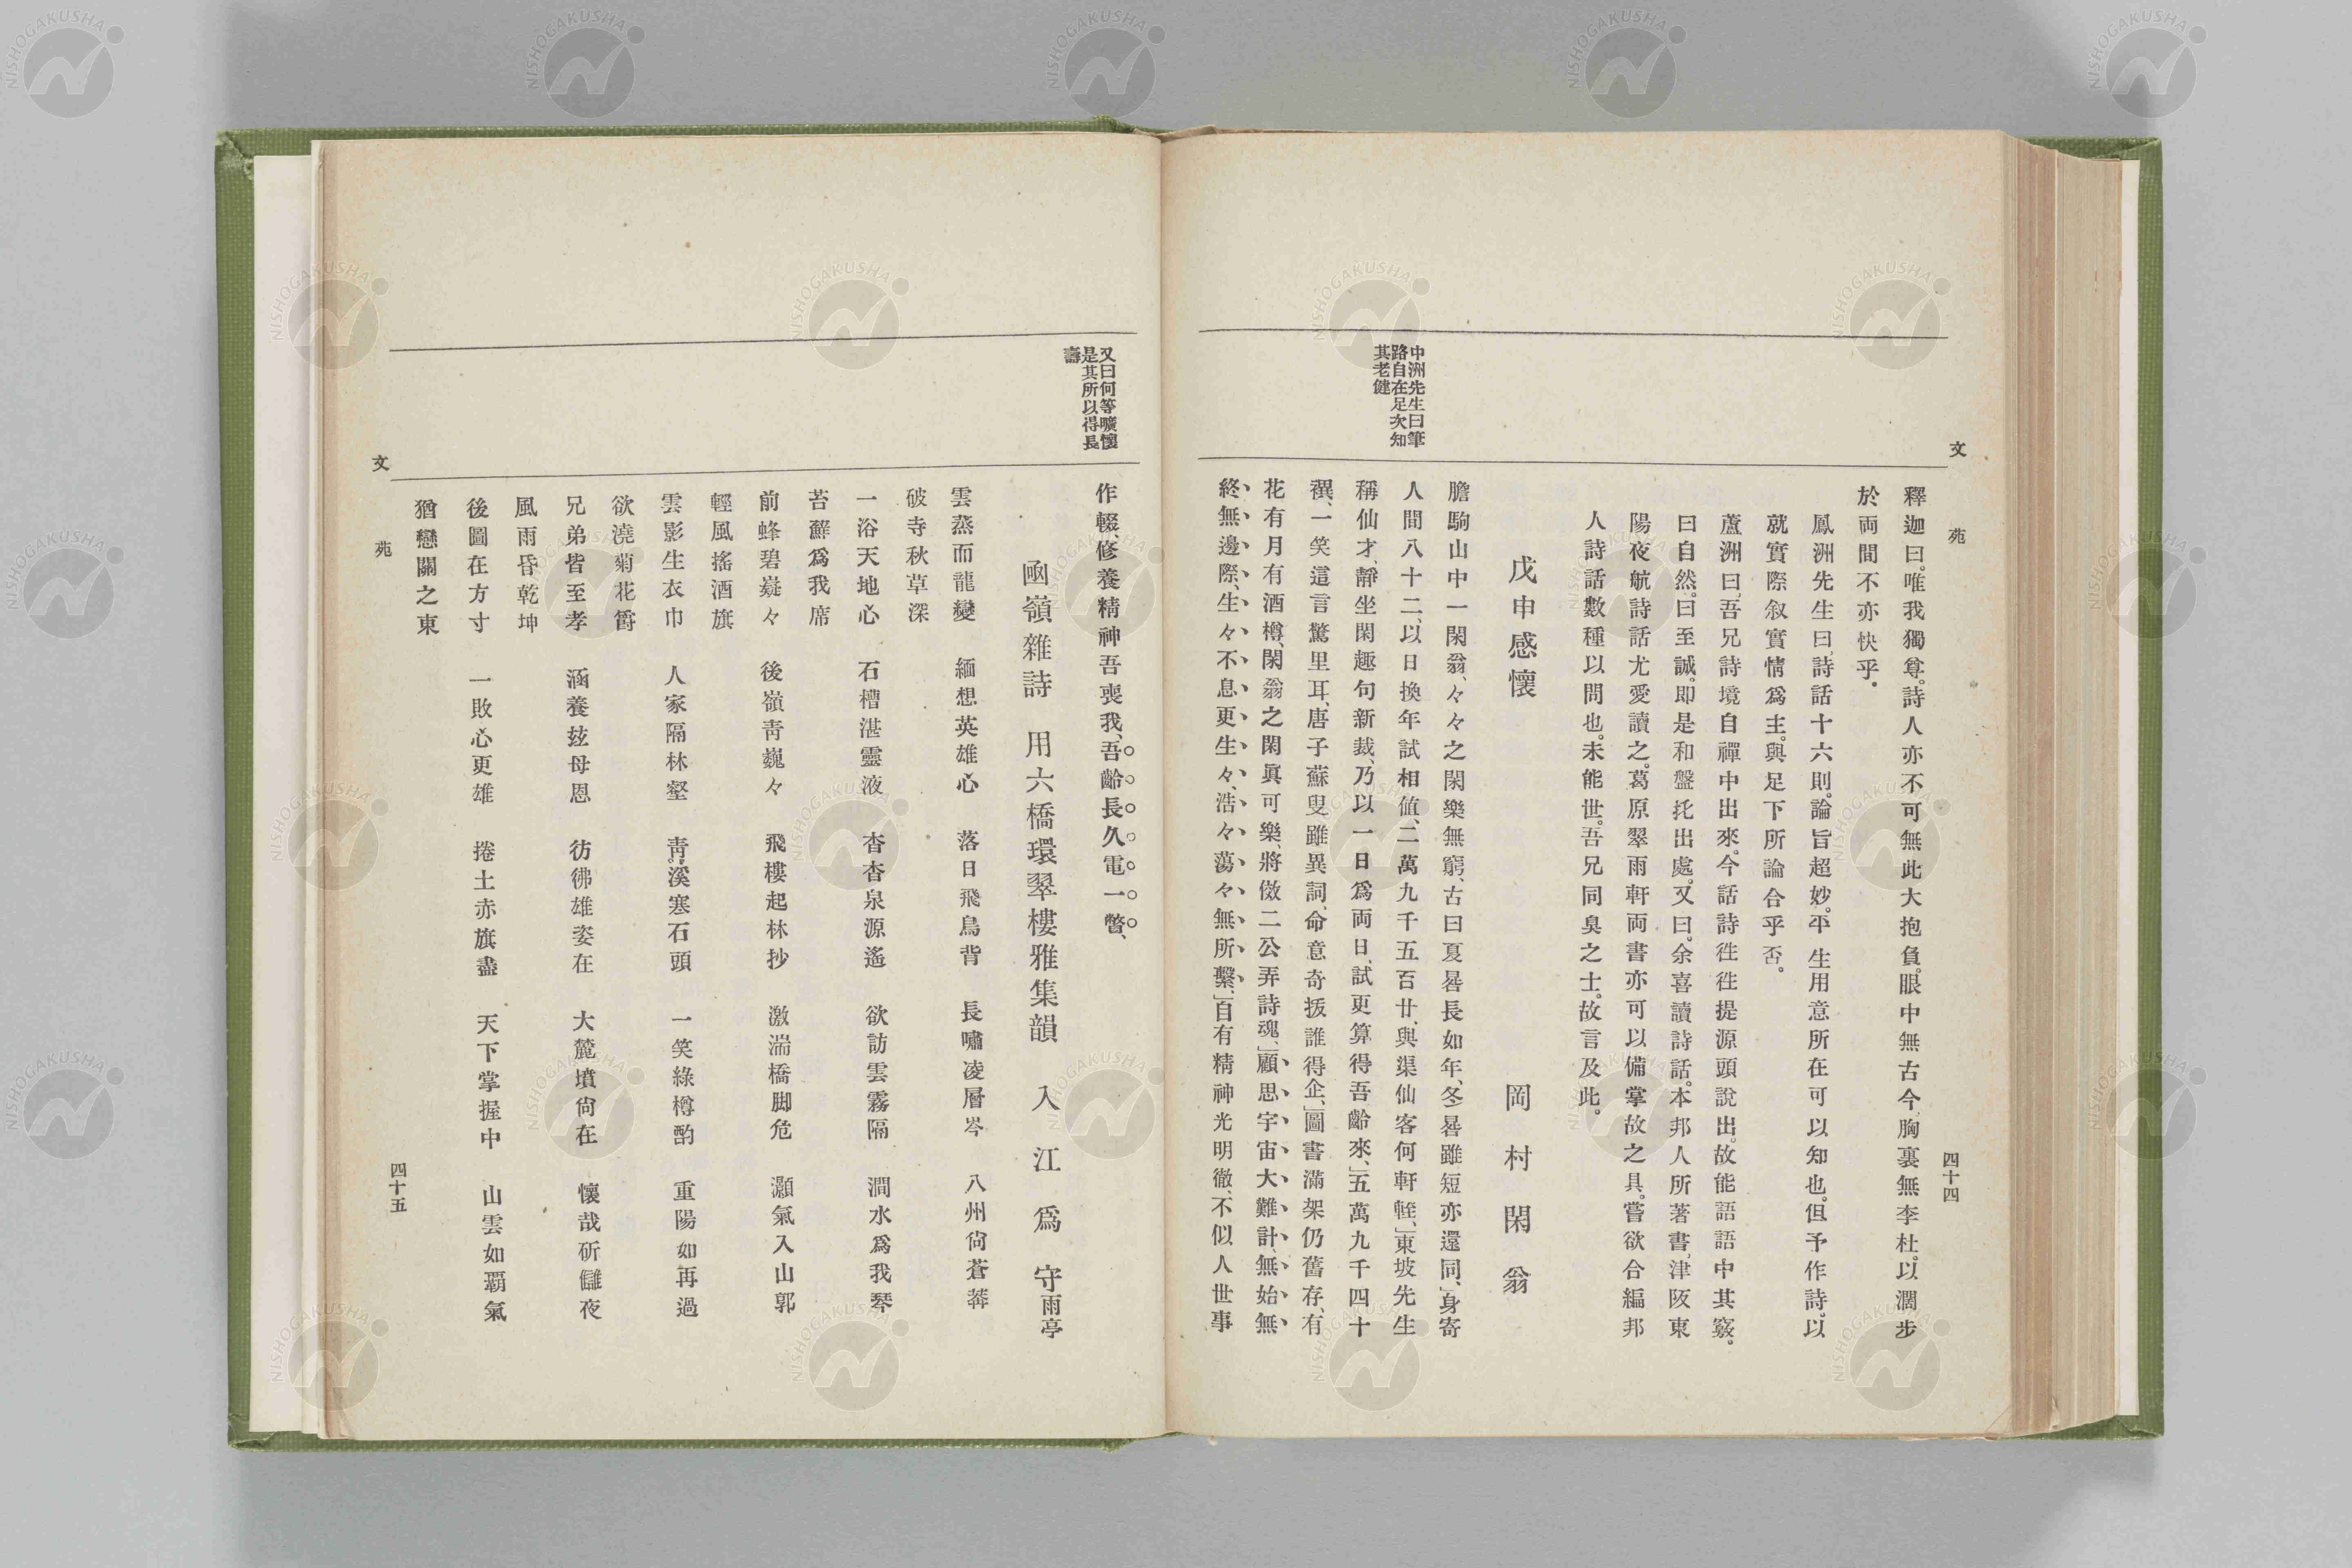 文 苑
四十四
釋迦曰。唯我獨尊。詩人亦不可無此大抱負。眼中無古今、胸裏無李杜。以濶步
於兩間不亦快乎。
鳳洲先生曰、詩話十六則。論旨超妙。平生用意所在可以知也。但予作詩。以
就實際叙實情爲主。與足下所論合乎否。
蘆洲曰、吾兄詩境自禪中出來。今話詩徃徃提源頭說出。故能語語中其竅。
曰自然。曰至誠。即是和盤托出處。又曰。余喜讀詩話。本邦人所著書、津阪東
陽夜航詩話尤愛讀之。葛原翠雨軒兩書亦可以備掌故之具。嘗欲合編邦
人詩話數種以問也。未能世。吾兄同臭之士。故言及此。
戊申感懷 岡村閑翁
中洲先生曰筆
路自在足次知
其老健
膽駒山中一閑翁、々々之閑樂無窮、古曰夏晷長如年、冬晷雖短亦還同、」身寄
人間八十二、以日換年試相値、二萬九千五百廿、與渠仙客何軒輊、」東坡先生
稱仙才、靜坐閑趣句新裁、乃以一日爲兩日、試更算得吾齡來、」五萬九千四十
襈、一笑這言驚里耳、唐子蘇叟雖異詞、命意奇拔誰得企、」圖書滿架仍舊存、有
花有月有酒樽、閑翁之閑眞可樂、將倣二公弄詩魂、」顧思宇宙大難計、無始無
終無邊際、生々不息更生々、浩々蕩々無所繫、」自有精神光明徹、不似人世事
又曰何等曠懷
是其所以得長
壽
作輟、修養精神吾喪我、吾齡長久電一瞥、
凾嶺雜詩 用六橋環翠樓雅集韻 入江爲守雨亭
雲蒸而龍變 緬想英雄心 落日飛鳥背 長嘯凌層岑 八州尙蒼莽
破寺秋草深
一浴天地心 石槽湛靈液 杳杳泉源遙 欲訪雲霧隔 澗水爲我琴
苔蘚爲我席
前蜂碧嶷々 後嶺靑巍々 飛樓起林抄 激湍橋脚危 灝氣入山郭
輕風搖酒旗
雲影生衣巾 人家隔林壑 靑溪寒石頭 一笑綠樽酌 重陽如再過
欲澆菊花爵
兄弟皆至孝 涵養玆母恩 彷彿雄姿在 大麓墳尙在 懷哉斫讎夜
風雨昏乾坤
後圖在方寸 一敗心更雄 捲土赤旗盡 天下掌握中 山雲如覇氣
猶戀關之東
文 苑
四十五